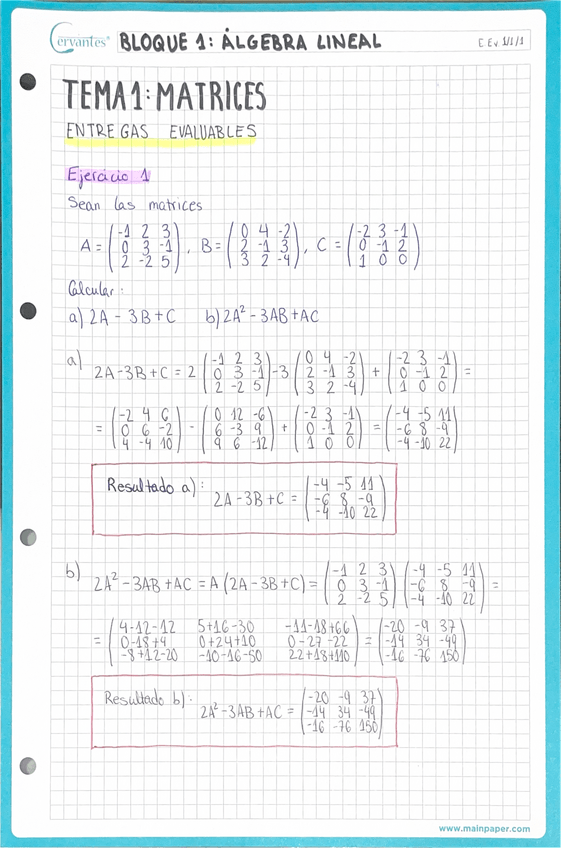 Cervantes® BLOQUE 1: ÁLGEBRA LINEAL E.Ev. 1/1/1
TEMA 1: MATRICES
ENTREGAS EVALUABLES
Ejercicio 1
Sean las matrices
A = (-1 2 3; 0 3 -1; 2 -2 5), B = (0 4 -2; 2 -1 3; 3 2 -4), C = (-2 3 -1; 0 -1 2; 1 0 0)
Calcular:
a) 2A - 3B + C b) 2A² - 3AB + AC
a) 2A - 3B + C = 2 (-1 2 3; 0 3 -1; 2 -2 5) - 3 (0 4 -2; 2 -1 3; 3 2 -4) + (-2 3 -1; 0 -1 2; 1 0 0) =
= (-2 4 6; 0 6 -2; 4 -4 10) - (0 12 -6; 6 -3 9; 9 6 -12) + (-2 3 -1; 0 -1 2; 1 0 0) = (-4 -5 11; -6 8 -9; -4 -10 22)
Resultado a): 2A - 3B + C = (-4 -5 11; -6 8 -9; -4 -10 22)
b) 2A² - 3AB + AC = A (2A - 3B + C) = (-1 2 3; 0 3 -1; 2 -2 5) (-4 -5 11; -6 8 -9; -4 -10 22) =
= (4-12-12 5+16-30 -11-18+66; 0-18+4 0+24+10 0-27-22; -8+12-20 -10-16-50 22+18+110) = (-20 -9 37; -14 34 -49; -16 -76 150)
Resultado b): 2A² - 3AB + AC = (-20 -9 37; -14 34 -49; -16 -76 150)
www.mainpaper.com